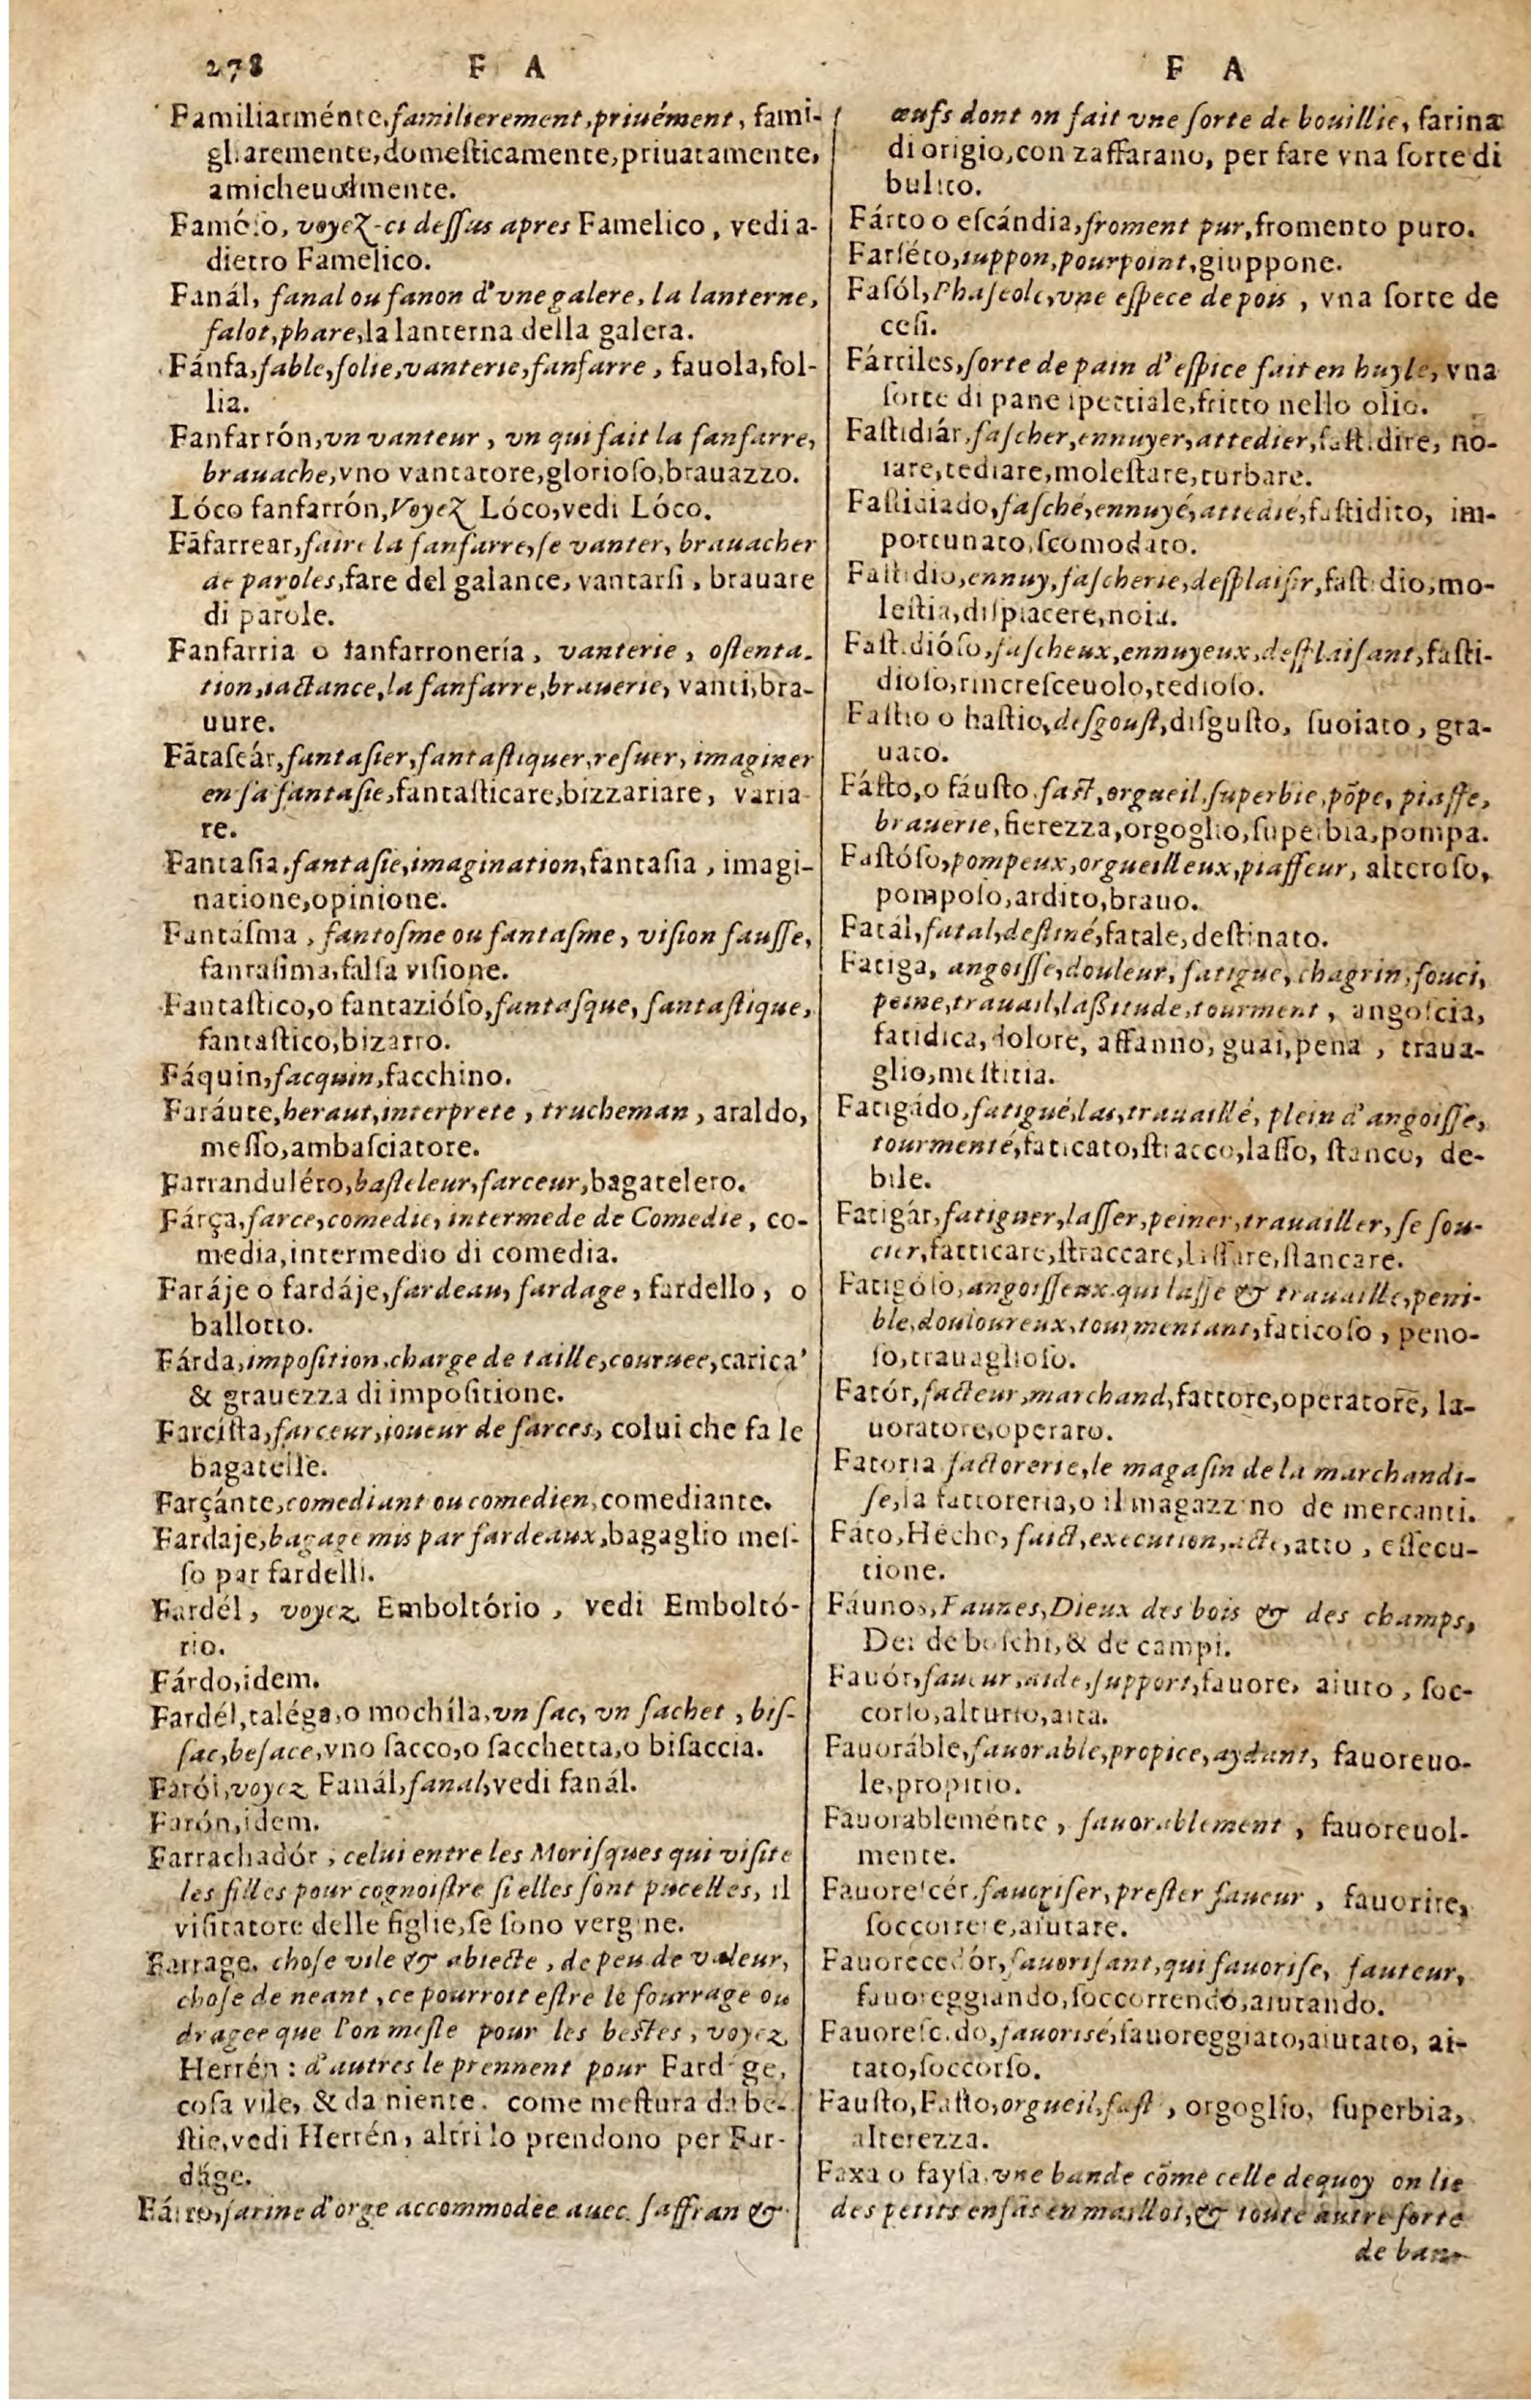 278 F A F A
Familiarménte,familierement,priuément, fami-
gliaremente,domeſticamente,priuatamente,
amicheuolmente.
Famóſo, voyez-ci deſſus apres Famelico, vedi a-
dietro Famelico.
Fanál, fanal ou fanon d'vne galere, la lanterne,
falot,phare,la lanterna della galera.
Fánfa,fable,folie,vanterie,fanfarre, fauola,fol-
lia.
Fanfarrón,vn vanteur, vn qui fait la fanfarre,
brauache,vno vantatore,glorioſo,brauazzo.
Lóco fanfarrón,Voyez Lóco,vedi Lóco.
Fãfarrear,faire la fanfarre,ſe vanter, brauacher
de paroles,fare del galante, vantarſi, brauare
di parole.
Fanfarria o fanfarronería, vanterie, oſtenta-
tion,iactance,la fanfarre,brauerie, vanti,bra-
uure.
Fãtaſeár,fantaſier,fantaſtiquer,reſuer, imaginer
en ſa fantaſie,fantaſticare,bizzariare, varia-
re.
Fantaſia,fantaſie,imagination,fantaſia, imagi-
natione,opinione.
Fantáſma, fantoſme ou fantaſme, viſion fauſſe,
fantaſima,falſa viſione.
Fantaſtico,o fantazióſo,fantaſque, fantaſtique,
fantaſtico,bizarro.
Fáquin,facquin,facchino.
Faráute,heraut,interprete, trucheman, araldo,
meſſo,ambaſciatore.
Farranduléro,baſteleur,farceur,bagatelero.
Fárça,farce,comedie, intermede de Comedie, co-
media,intermedio di comedia.
Faráje o fardáje,fardeau, fardage, fardello, o
ballotto.
Fárda,impoſition,charge de taille,couruee,carica
& grauezza di impoſitione.
Farciſta,farceur,ioueur de farces, colui che fa le
bagatelle.
Farçánte,comediant ou comedien,comediante.
Fardaje,bagage mis par fardeaux,bagaglio meſ-
ſo par fardelli.
Fardél, voyez Emboltório, vedi Emboltó-
rio.
Fárdo,idem.
Fardél,taléga,o mochíla,vn ſac, vn ſachet, biſ-
ſac,beſace,vno ſacco,o ſacchetta,o biſaccia.
Faról,voyez Fanál,fanal,vedi fanál.
Farón,idem.
Farrachadór, celui entre les Moriſques qui viſite
les filles pour cognoiſtre ſi elles ſont pucelles, il
viſitatore delle figlie,ſe ſono vergine.
Farrage, choſe vile & abiecte, de peu de valeur,
choſe de neant, ce pourroit eſtre le fourrage ou
dragee que l'on meſle pour les beſtes, voyez
Herrén: d'autres le prennent pour Fardage,
coſa vile, & da niente, come meſtura da be-
ſtie,vedi Herrén, altri lo prendono per Far-
dáge.
Fárro,farine d'orge accommodée auec ſaffran &
œufs dont on fait vne ſorte de bouillie, farina
di origio,con zaffarano, per fare vna ſorte di
bulito.
Fárto o eſcándia,froment pur,fromento puro.
Farſéto,iuppon,pourpoint,giuppone.
Faſól,Phaſeole,vne eſpece de pois, vna ſorte de
ceſi.
Fártiles,ſorte de pain d'eſpice fait en huyle, vna
ſorte di pane ſpetiale,fritto nello olio.
Faſtidiár,faſcher,ennuyer,attedier,faſtidire, no-
iare,tediare,moleſtare,turbare.
Faſtidiado,faſché,ennuyé,attedié,faſtidito, im-
portunato,ſcomodato.
Faſtidio,ennuy,faſcherie,deſplaiſir,faſtidio,mo-
leſtia,diſpiacere,noia.
Faſtidióſo,faſcheux,ennuyeux,deſplaiſant,faſti-
dioſo,rincreſceuolo,tedioſo.
Faſtio o haſtio,deſgouſt,diſguſto, ſuoiato, gra-
uato.
Fáſto,o fáuſto,faſt,orgueil,ſuperbie,põpe, piaffe,
brauerie,fierezza,orgoglio,ſuperbia,pompa.
Faſtóſo,pompeux,orgueilleux,piaffeur, alteroſo,
pompoſo,ardito,brauo.
Fatál,fatal,deſtiné,fatale,deſtinato.
Fatiga, angoiſſe,douleur, fatigue, chagrin,ſouci,
peine,trauail,laßitude,tourment, angoſcia,
fatidica,dolore, affanno, guai,pena, traua-
glio,meſtitia.
Fatigádo,fatigué,las,trauaillé, plein d'angoiſſe,
tourmenté,faticato,ſtracco,laſſo, ſtanco, de-
bile.
Fatigár,fatiguer,laſſer,peiner,trauailler, ſe ſou-
cier,fatticare,ſtraccare,laſſare,ſtancare.
Fatigóſo,angoiſſeux,qui laſſe & trauaille,peni-
ble,douloureux,tourmentant,faticoſo, peno-
ſo,trauaglioſo.
Fatór,facteur,marchand,fattore,operatore, la-
uoratore,operaro.
Fatoria factorerie,le magaſin de la marchandi-
ſe,la fattoreria,o il magazzino de mercanti.
Fáto,Hécho, faict,execution,acte,atto, eſſecu-
tione.
Fáunos,Faunes,Dieux des bois & des champs,
Dei de boſchi,& de campi.
Fauór,faueur,aide,ſupport,fauore, aiuto, ſoc-
corſo,alturio,aita.
Fauoráble,fauorable,propice,aydant, fauoreuo-
le,propitio.
Fauorableménte, fauorablement, fauoreuol-
mente.
Fauoreſcér,fauoriſer,preſter faueur, fauorire,
ſoccorrere,aiutare.
Fauorecedór,fauoriſant,qui fauoriſe, fauteur,
fauoreggiando,ſoccorrendo,aiutando.
Fauoreſcido,fauorisé,fauoreggiato,aiutato, ai-
tato,ſoccorſo.
Fauſto,Faſto,orgueil,faſt, orgoglio, ſuperbia,
alterezza.
Faxa o fayſa,vne bande cõme celle dequoy on lie
des petits enfãs en maillot,& toute autre ſorte
de ban-